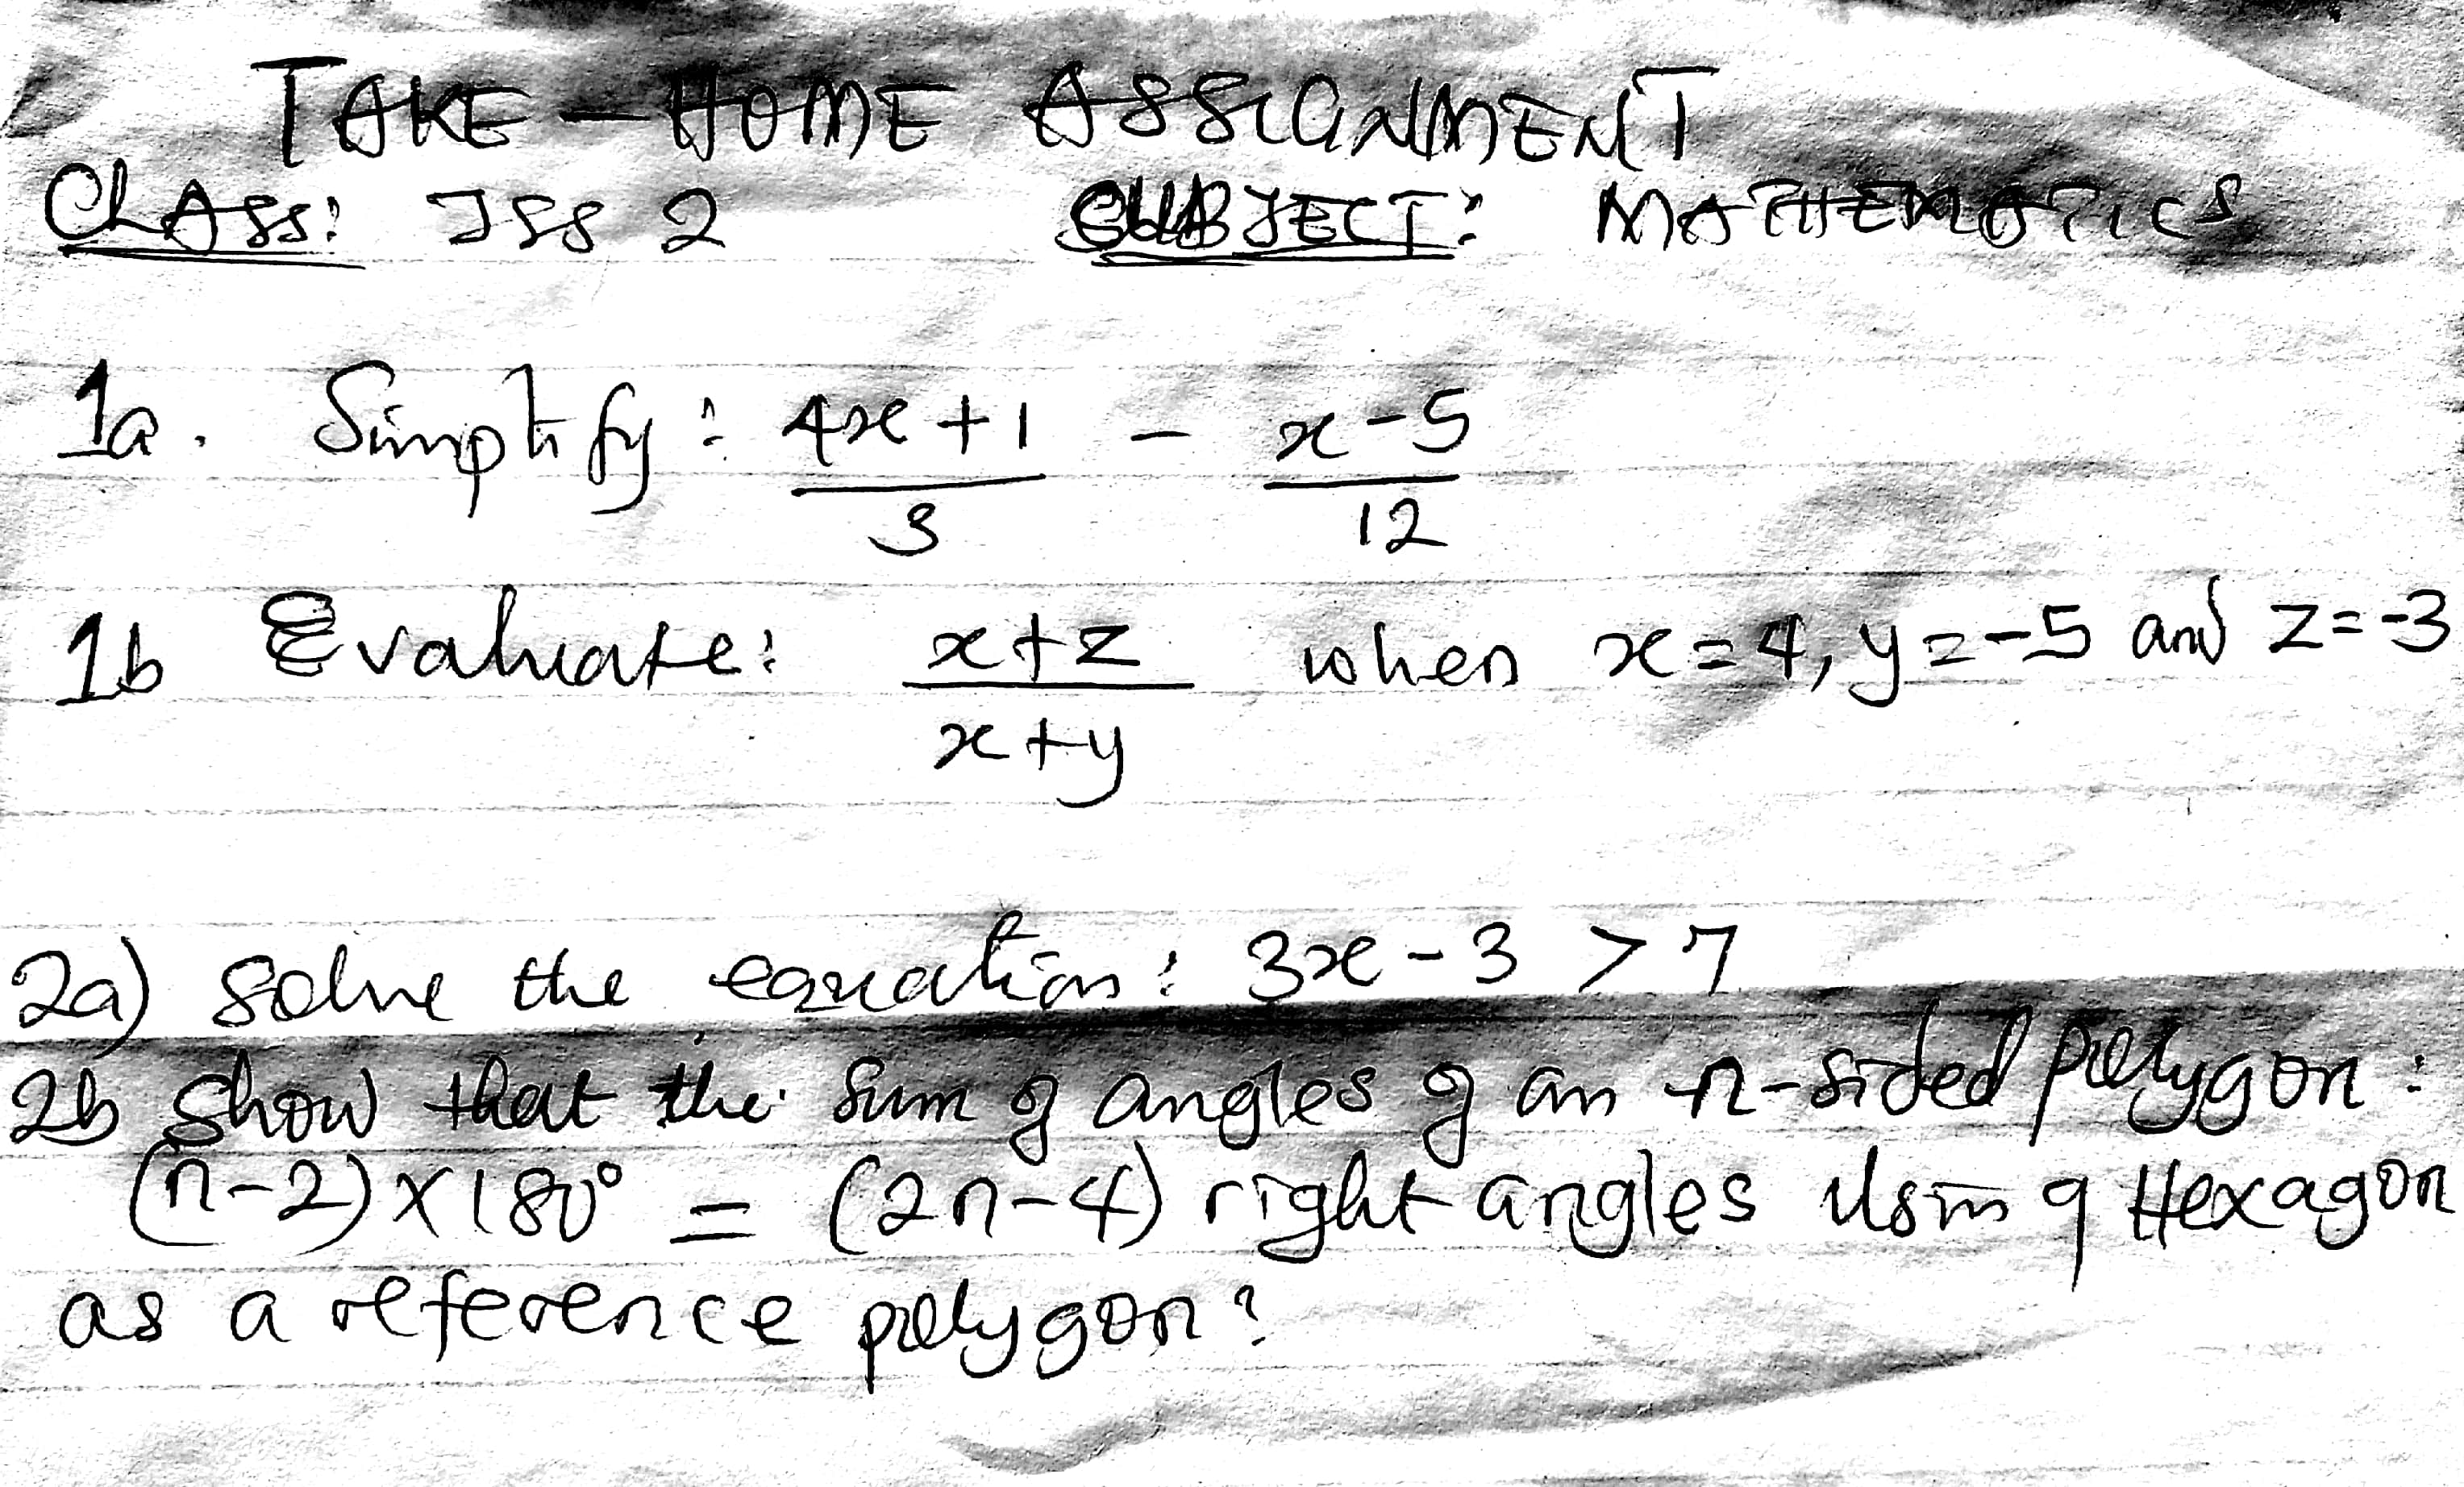 TAKE-HOME ASSIGNMENT
CLASS: JSS 2 SUBJECT: MATHEMATICS
1a. Simplify: 4x+1 - x-5
3 12
1b Evaluate: x+z when x=4, y=-5 and z=-3
x+y
2a) Solve the equation: 3x-3 > 7
2b Show that the sum of angles of an n-sided polygon:
(n-2)×180° = (2n-4) right angles using a Hexagon
as a reference polygon?